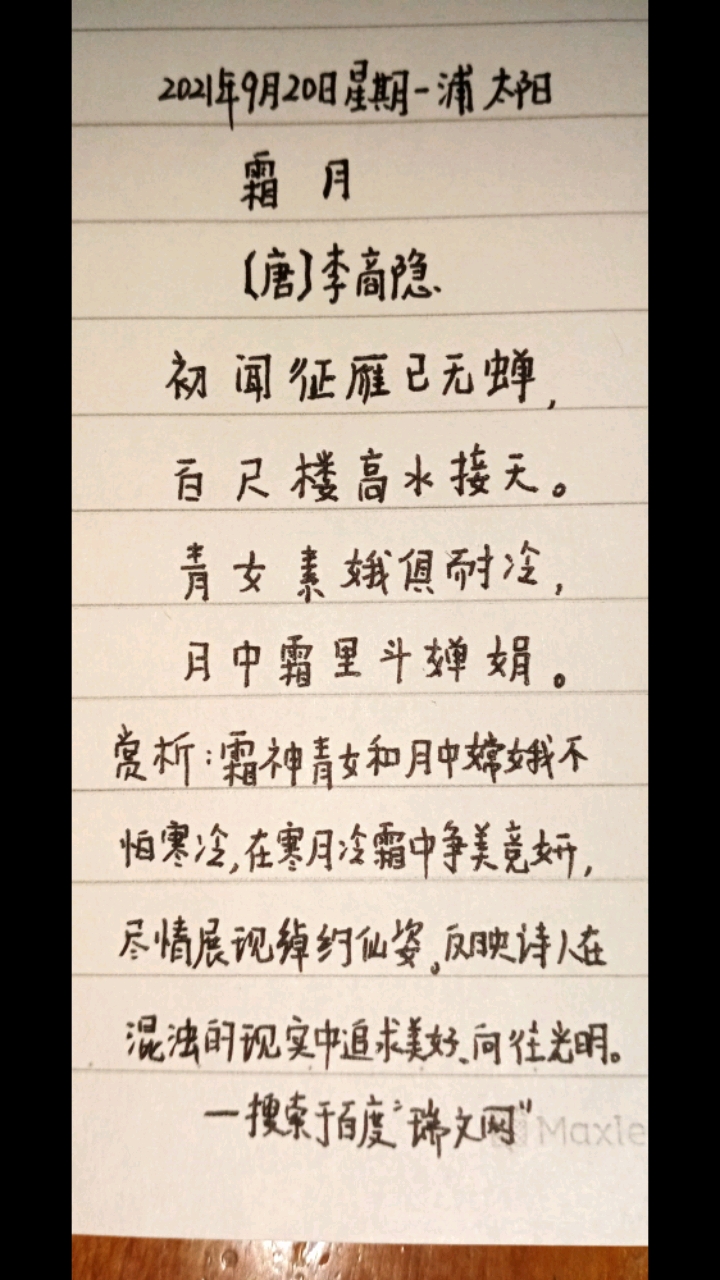 2021年9月20日星期一浦太阳
霜月
〔唐〕李商隐
初闻征雁已无蝉,
百尺楼高水接天。
青女素娥俱耐冷,
月中霜里斗婵娟。
赏析:霜神青女和月中嫦娥不
怕寒冷,在寒月冷霜中争美竞妍,
尽情展现绰约仙姿。反映诗人在
混浊的现实中追求美好、向往光明。
一搜索于百度“瑞文网”
Maxle